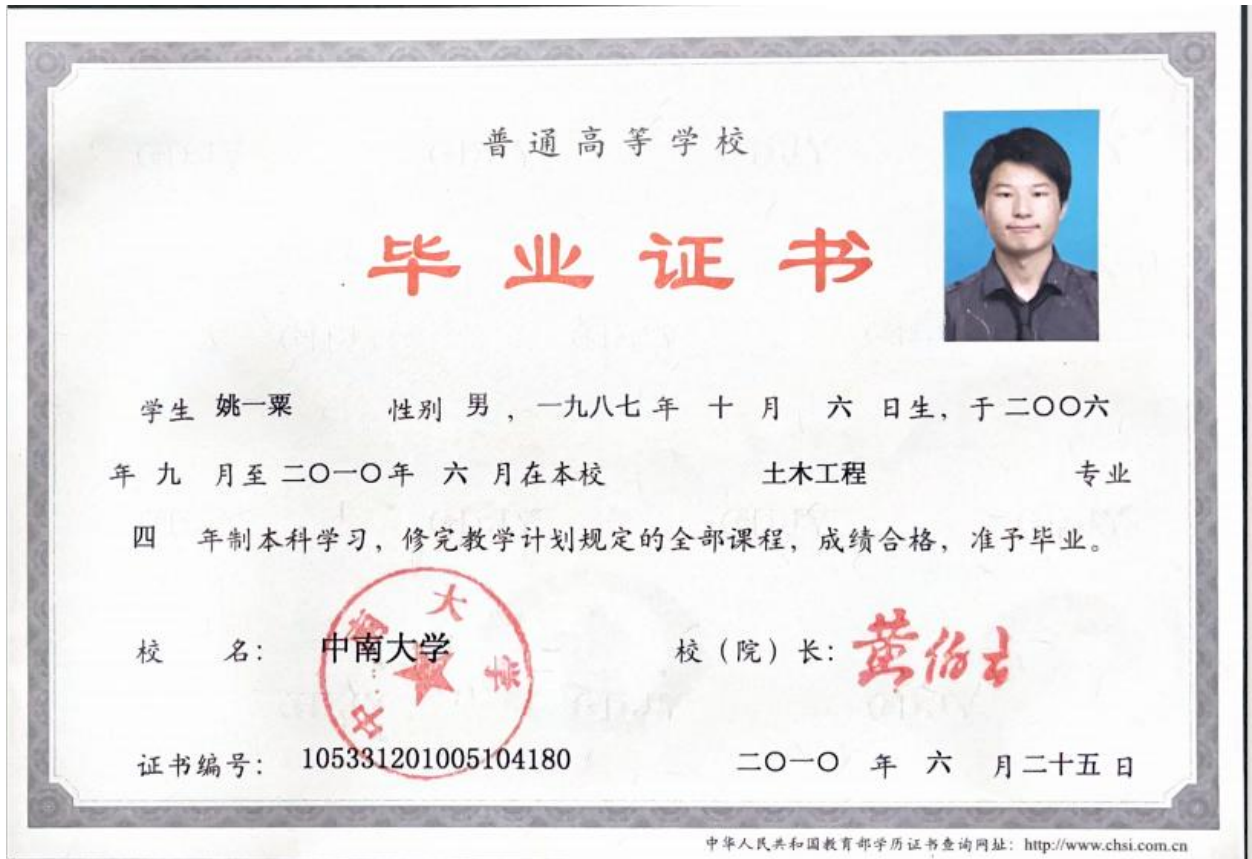 普通高等学校
毕业证书
学生 姚一粟 性别 男 ，一九八七 年 十 月 六 日生，于 二〇〇六
年 九 月至 二〇一〇年 六 月在本校 土木工程 专业
四 年制本科学习，修完教学计划规定的全部课程，成绩合格，准予毕业。
校 名： 中南大学 校（院）长：黄伯云
中南大学
证书编号： 105331201005104180 二〇一〇 年 六 月二十五 日
中华人民共和国教育部学历证书查询网址：http://www.chsi.com.cn